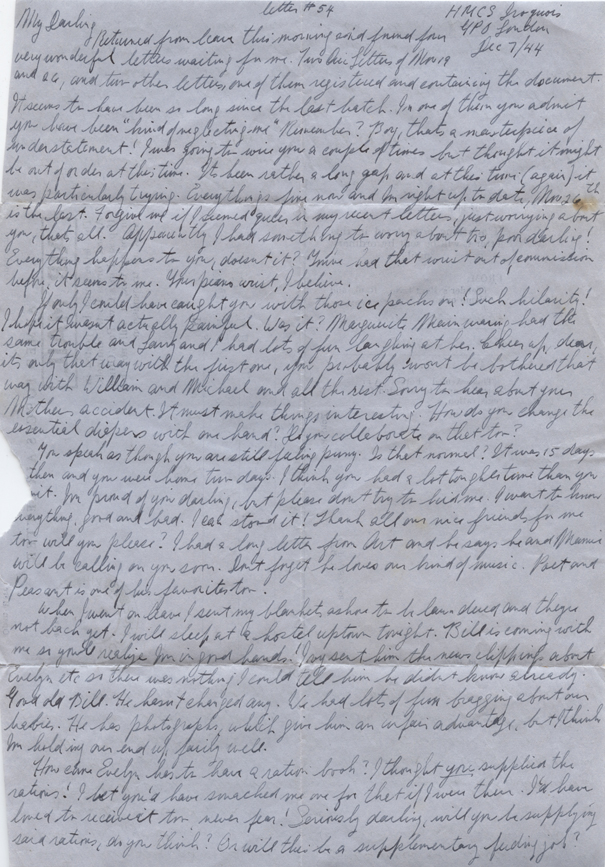 letter #54
HMCS Iroquois
My Darling
GPO London
Dec 7/44
Returned from leave this morning and found four
very wonderful letters waiting for me. Two Air Letters of Nov 19
and 26, and two other letters, one of them registered and containing the document.
It seems to have been so long since the last batch. In one of them you admit
you have been "kind of neglecting me" Remember? Boy, thats a masterpiece of
understatement! I was going to wire you a couple of times but thought it might
be out of order at this time. Its been rather a long gap and at this time (again) it
was particularly trying. Everythings fine now and Im right up to date, Nov. 26th
is the last. Forgive me if I seemed queer in my recent letters, just worrying about
you, thats all. Apparently I had something to worry about too, poor darling!
Everything happens to you, doesn't it? Youve had that wrist out of commission
before, it seems to me. Your piano wrist, I believe.
If only I could have caught you with those ice packs on! Such hilarity!
I hope it wasn't actually painful. Was it? Marguerite Mainwaring had the
same trouble and Larry and I had lots of fun laughing at her. Cheer up, dear,
its only that way with the first one, you probably won't be bothered that
way with William and Michael and all the rest. Sorry to hear about your
Mothers accident. It must make things interesting. How do you change the
essential diapers with one hand? Do you collaborate on that too?
You speak as though you are still feeling puny. Is that normal? It was 15 days
then and you were home two days. I think you had a lot tougher time than you
Im proud of you darling, but please don't try to kid me. I want to know
everything, good and bad. I can stand it! Thank all our nice friends for me
too will you please? I had a long letter from Art and he says he and Mamie
will be calling on you soon. Don't forget he loves our kind of music. Poet and
Peasant is one of his favorites too.
When I went on leave I sent my blankets ashore to be laundered and theyre
not back yet. I will sleep at a hostel uptown tonight. Bill is coming with
me so you'll realize Im in good hands. Ivy sent him the news clippings about
Evelyn etc so there was nothing I could tell him he didn't know already.
Good old Bill. He hasn't changed any. We had lots of fun bragging about our
babies. He has photographs, which give him an unfair advantage, but I think
Im holding our end up fairly well.
How come Evelyn has to have a ration book? I thought you supplied the
rations! I bet you'd have smacked me one for that if I were there. I'd have
loved to receive it too never fear! Seriously darling, will you be supplying
said rations, do you think? Or will this be a supplementary feeding job?